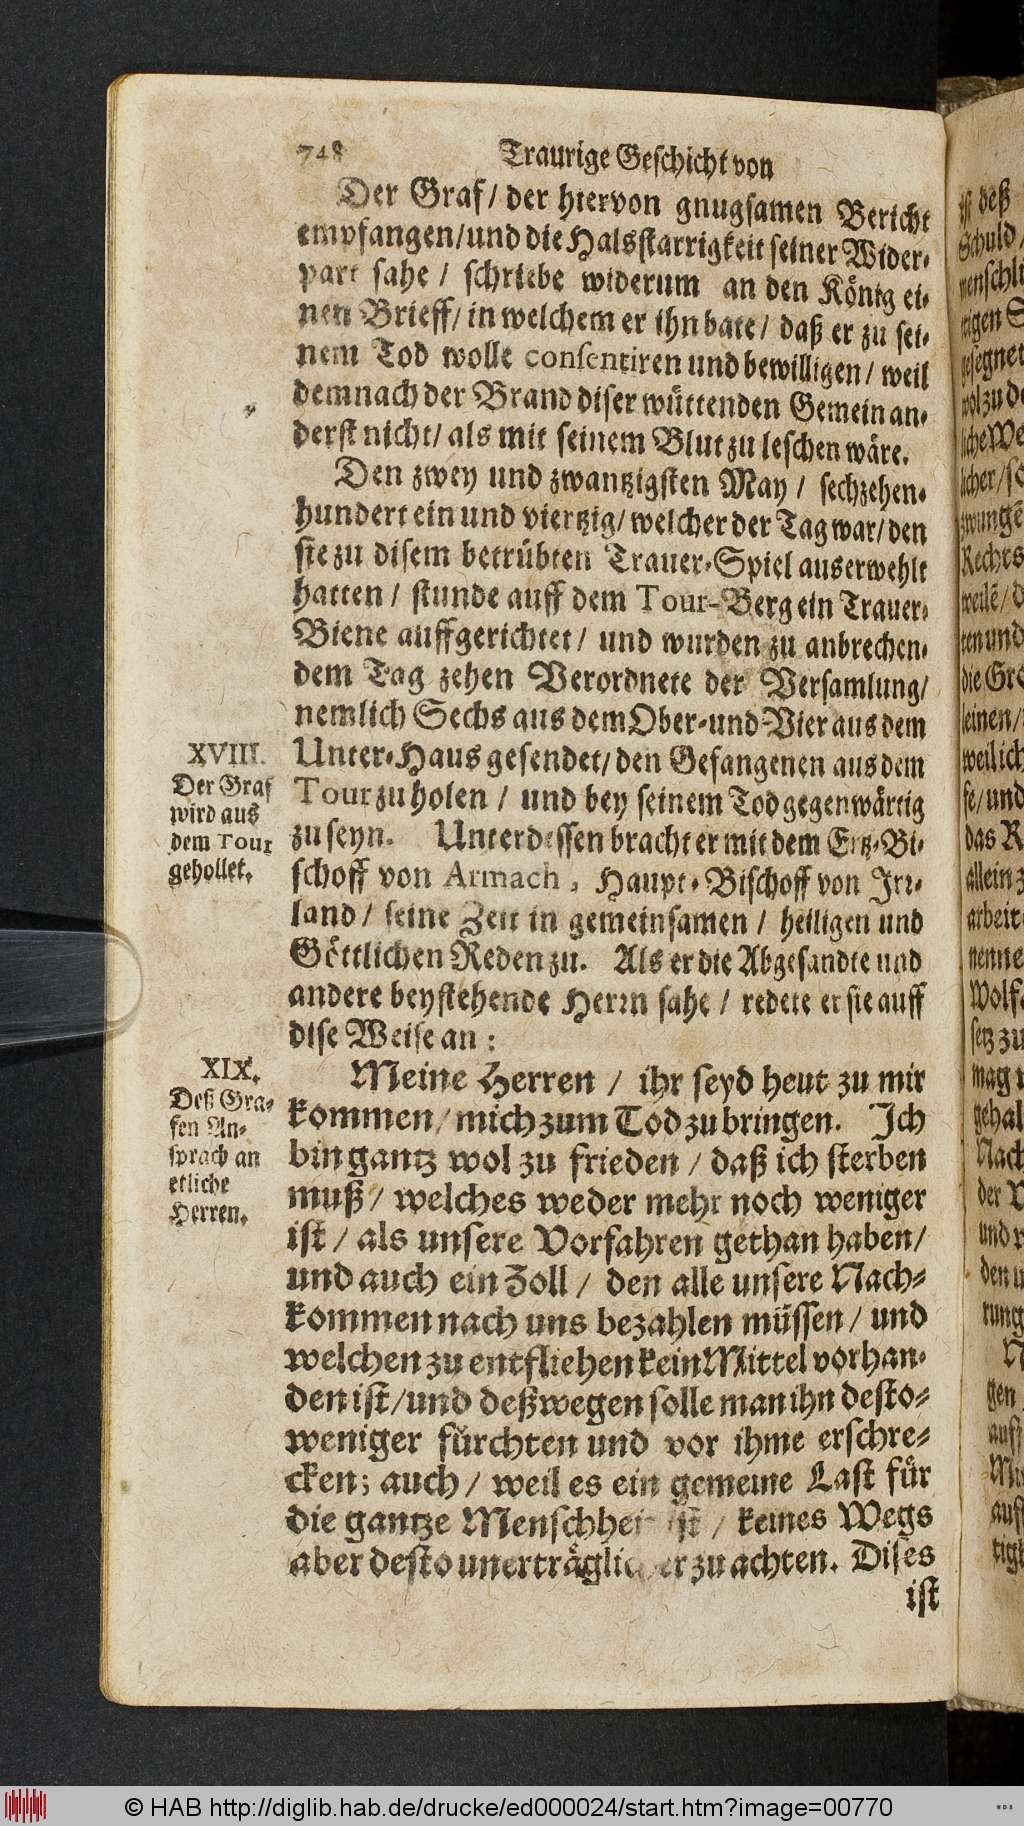 748 Traurige Geschicht von
Der Graf/ der hiervon gnugsamen Bericht
empfangen/und die Halsstarrigkeit seiner Wider-
part sahe / schriebe widerum an den König ei-
nen Brieff/ in welchem er ihn bate/ daß er zu sei-
nem Tod wolle consentiren und bewilligen/ weil
demnach der Brand diser wüttenden Gemein an-
derst nicht/ als mit seinem Blut zu leschen wäre.
Den zwey und zwantzigsten May / sechzehen-
hundert ein und viertzig/ welcher der Tag war/ den
sie zu disem betrübten Trauer-Spiel auserwehlt
hatten / stunde auff dem Tour-Berg ein Trauer-
Biene auffgerichtet/ und wurden zu anbrechen-
dem Tag zehen Verordnete der Versamlung/
nemlich Sechs aus dem Ober-und-Vier aus dem
Unter-Haus gesendet/ den Gefangenen aus dem
Tour zu holen / und bey seinem Tod gegenwärtig
zu seyn. Unterdessen bracht er mit dem Ertz-Bi-
schoff von Armach, Haupt-Bischoff von Irr-
land / seine Zeit in gemeinsamen / heiligen und
Göttlichen Reden zu. Als er die Abgesandte und
andere beystehende Herrn sahe / redete er sie auff
dise Weise an:
XVIII.
Der Graf
wird aus
dem Tour
gehollet.
Meine Herren / ihr seyd heut zu mir
kommen/ mich zum Tod zu bringen. Ich
bin gantz wol zu frieden / daß ich sterben
muß / welches weder mehr noch weniger
ist / als unsere Vorfahren gethan haben/
und auch ein Zoll / den alle unsere Nach-
kommen nach uns bezahlen müssen / und
welchen zu entfliehen kein Mittel vorhan-
den ist/und deßwegen solle man ihn desto-
weniger fürchten und vor ihme erschre-
cken; auch / weil es ein gemeine Last für
die gantze Menschheit ist / keines Wegs
aber desto unerträglicher zu achten. Dises
ist
XIX.
Deß Gra-
fen An-
sprach an
etliche
Herren.
© HAB http://diglib.hab.de/drucke/ed000024/start.htm?image=00770